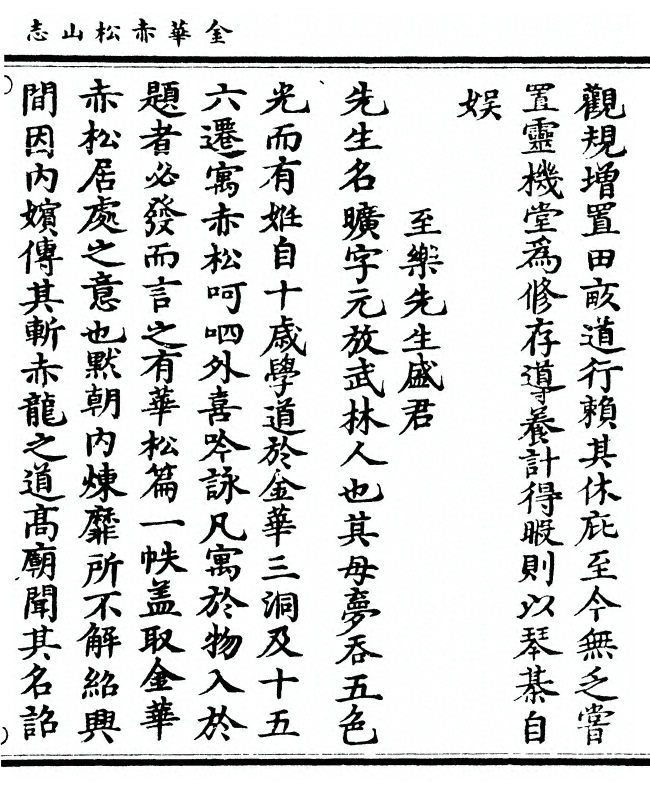 金華赤松山志
觀規增置田畝道行賴其休庇至今無乏嘗
置靈機堂為修存導養計得暇則以琴棊自
娛
至樂先生盛君
先生名曠字元放武林人也其母夢吞五色
光而有姙自十歲學道於金華三洞及十五
六遷寓赤松呵呬外喜吟詠凡寓於物入於
題者必發而言之有華松篇一帙盖取金華
赤松居處之意也默朝內煉靡所不解紹興
間因內嬪傳其斬赤龍之道高廟聞其名詔